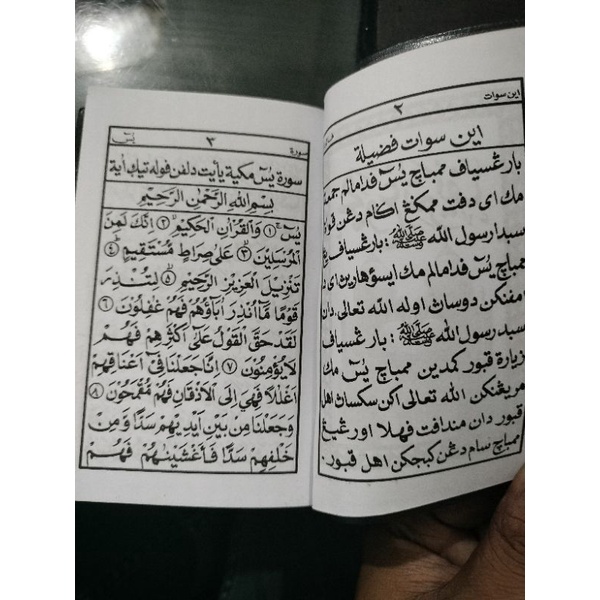 اين سوات ٢
اين سوات فضيلة
بارڠسياف ممباچ يٰسٓ فدامالم جمعة
مك اى دفت ممكڠ اكام دڠن قوة
سبدارسول الله ﷺ : بارڠسياف
ممباچ يٰسٓ فدامالم مك ايسؤهارين اى د
امفنكن دوسان اوله الله تعالى دان
سبدرسول الله ﷺ : بارڠسياف
زيارة قبور كمدين ممباچ يٰسٓ مك
مريڠنكن الله تعالى اكن سكسان اهل
قبور دان مندافت فهلا اورڠيڠ
ممباچ سام دڠن كبجكن اهل قبور.
سورة ٣ يٰسٓ
سورة يٰسٓ مكية يأيت دلفن فوله تيك أية
بِسْمِ اللهِ الرَّحْمٰنِ الرَّحِيْمِ
يٰسٓ ﴿١﴾ وَالْقُرْاٰنِ الْحَكِيْمِ ﴿٢﴾ اِنَّكَ لَمِنَ
الْمُرْسَلِيْنَ ﴿٣﴾ عَلٰى صِرَاطٍ مُّسْتَقِيْمٍ ﴿٤﴾
تَنْزِيْلَ الْعَزِيْزِ الرَّحِيْمِ ﴿٥﴾ لِتُنْذِرَ
قَوْمًا مَّآ اُنْذِرَ اٰبَآؤُهُمْ فَهُمْ غٰفِلُوْنَ ﴿٦﴾
لَقَدْ حَقَّ الْقَوْلُ عَلٰٓى اَكْثَرِهِمْ فَهُمْ
لَا يُؤْمِنُوْنَ ﴿٧﴾ اِنَّا جَعَلْنَا فِيْٓ اَعْنَاقِهِمْ
اَغْلٰلًا فَهِيَ اِلَى الْاَذْقَانِ فَهُمْ مُّقْمَحُوْنَ ﴿٨﴾
وَجَعَلْنَا مِنْ بَيْنِ اَيْدِيْهِمْ سَدًّا وَّمِنْ
خَلْفِهِمْ سَدًّا فَاَغْشَيْنٰهُمْ فَهُمْ